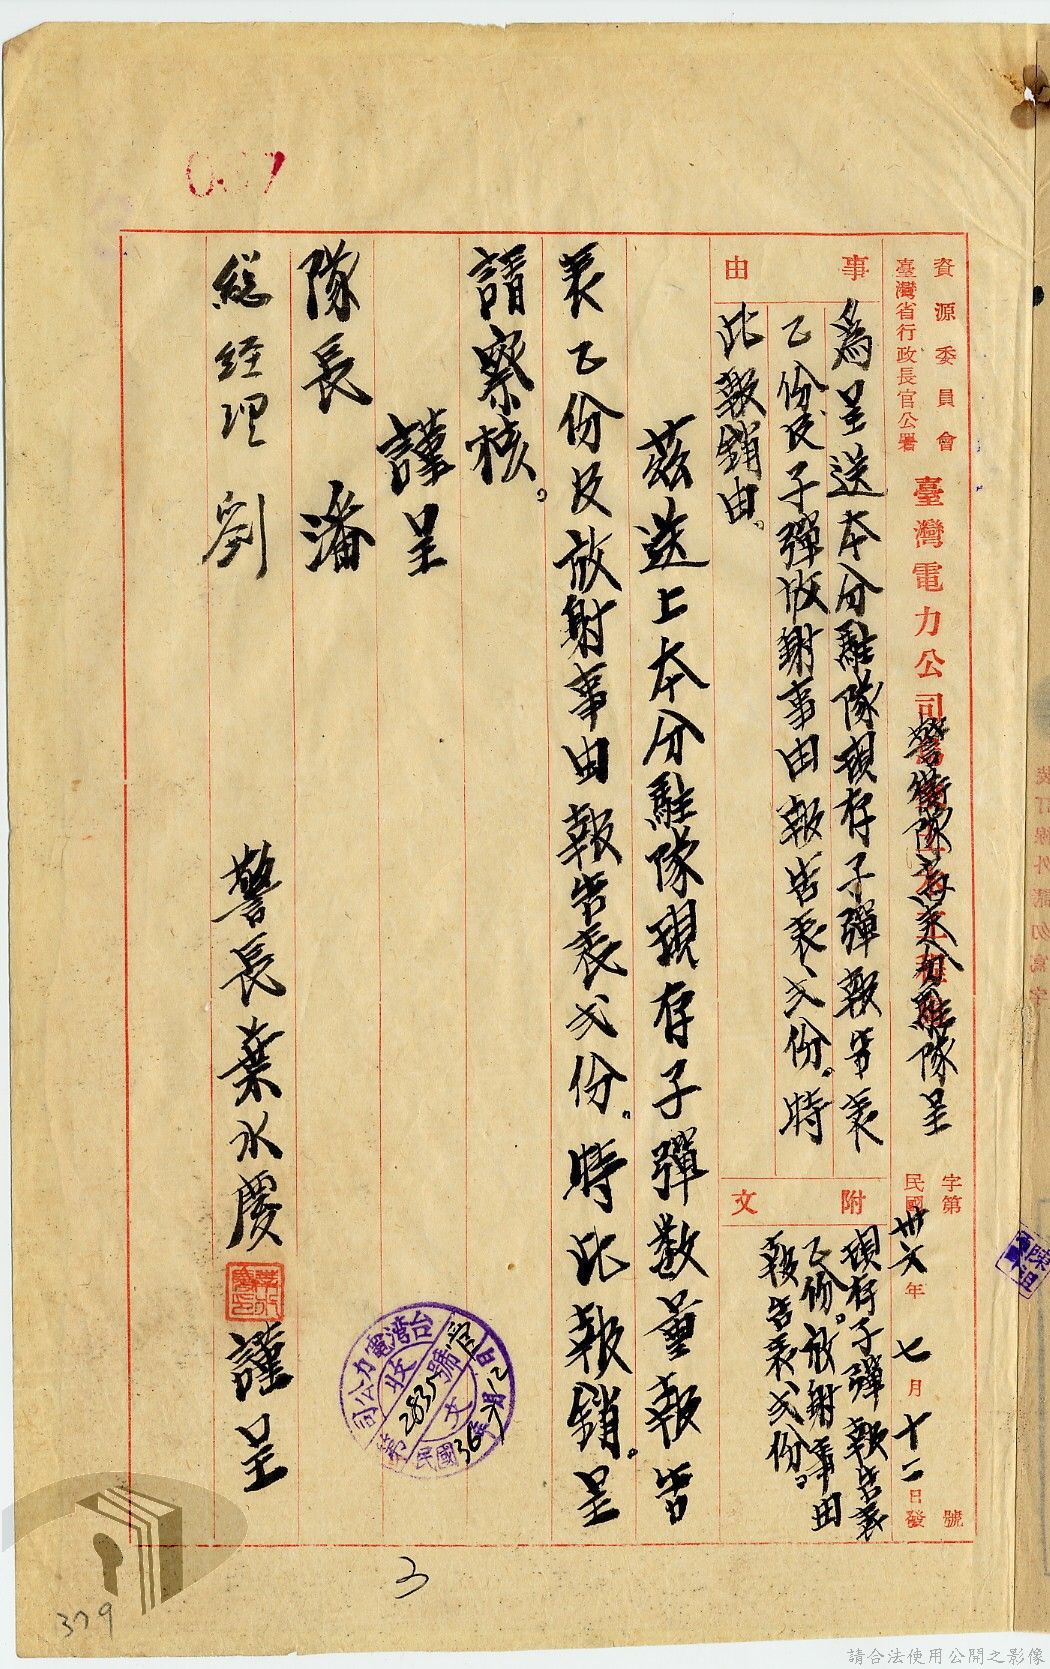 資源委員會
臺灣省行政長官公署
臺灣電力公司
警衛隊 分駐隊呈
字第 號
民國卅六年七月十二日發
事由
為呈送本分駐隊現存子彈報告表
乙份及子彈放射事由報告表弍份。特
此報銷由。
附文
現存子彈報告表
乙份。放射事由
報告表弍份。
茲送上本分駐隊現存子彈數量報告
表乙份及放射事由報告表弍份。特此報銷。呈
請察核。
謹呈
隊長 潘
總經理 劉
警長葉水慶謹呈
台灣電力公司
收文
第2835號
民國36年
007
3
379
裝訂線外請勿寫字
請合法使用公開之影像